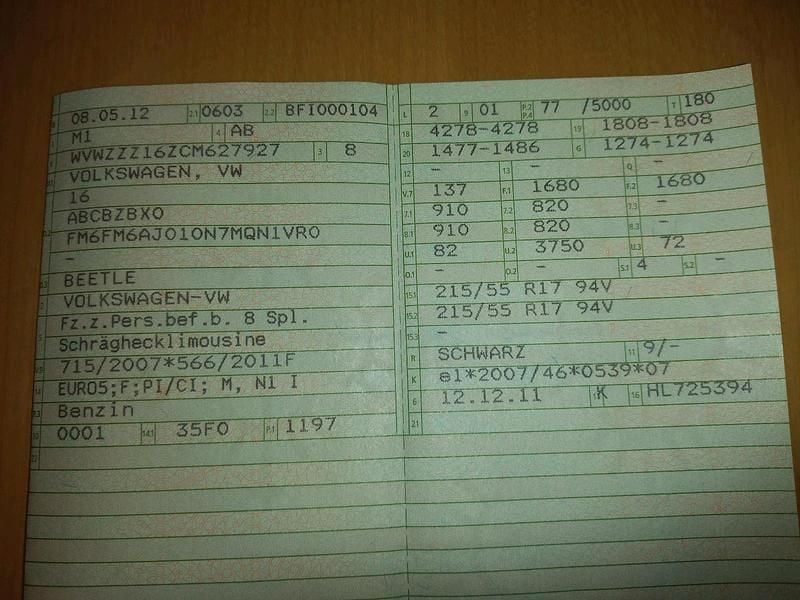 08.05.12 2.1 0603 2.2 BFI000104
M1 4 AB
WVWZZZ16ZCM627927 3 8
VOLKSWAGEN, VW
16
ABCBZBX0
FM6FM6AJ010N7MQN1VR0
-
BEETLE
VOLKSWAGEN-VW
Fz.z.Pers.bef.b. 8 Spl.
Schräghecklimousine
715/2007*566/2011F
EURO5;F;PI/CI; M, N1 I
Benzin
10 0001 14.1 35F0 P.1 1197
22
L 2 9 01 P.2 P.4 77 /5000 T 180
18 4278-4278 19 1808-1808
20 1477-1486 G 1274-1274
12 - 13 - Q -
V.7 137 F.1 1680 F.2 1680
7.1 910 7.2 820 7.3 -
8.1 910 8.2 820 8.3 -
U.1 82 U.2 3750 U.3 72
O.1 - O.2 - S.1 4 S.2 -
15.1 215/55 R17 94V
15.2 215/55 R17 94V
15.3 -
R SCHWARZ 11 9/-
K e1*2007/46*0539*07
6 12.12.11 K 16 HL725394
21